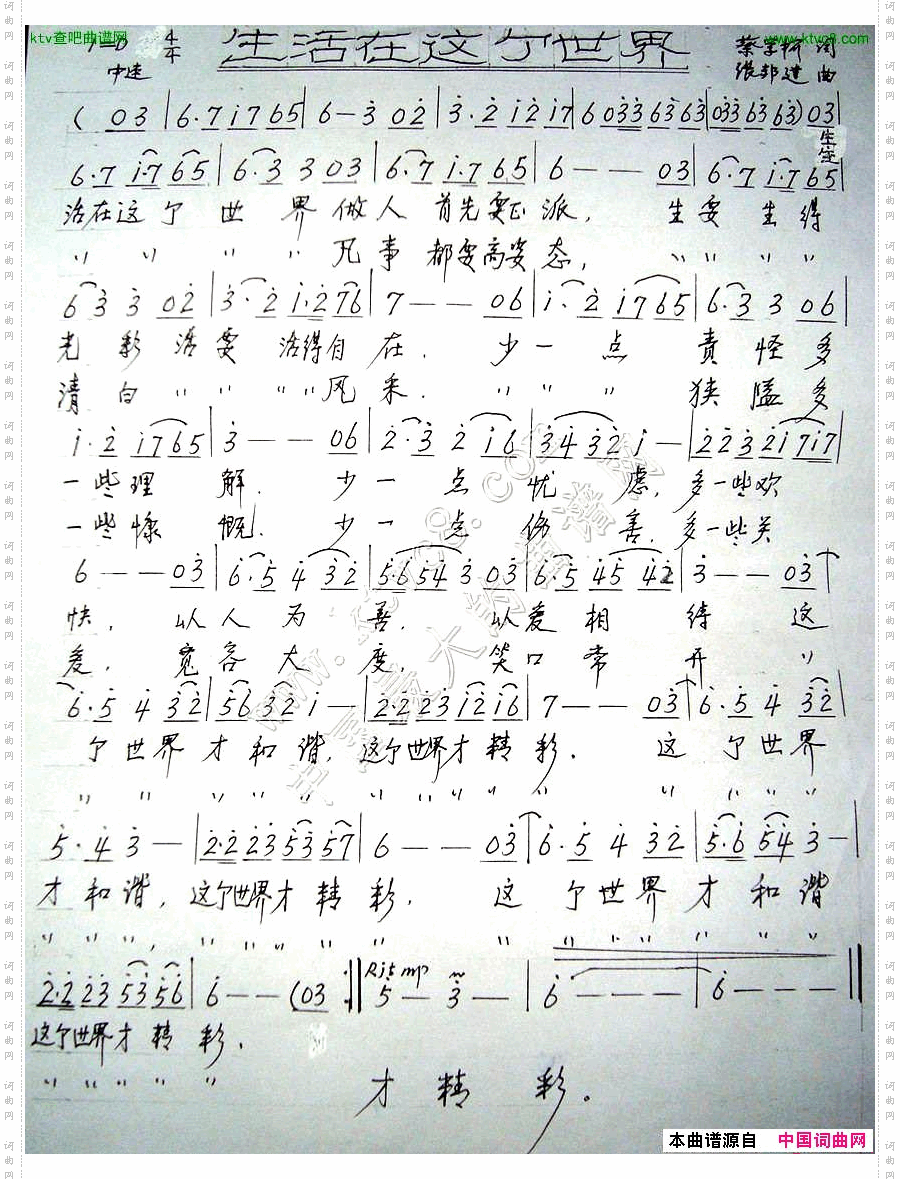 ktv查吧曲谱网 www.ktvc8.com
生活在这个世界
1=D 4/4
中速
词
张邦进 曲
( 03 | 6·7 1765 | 6-3 02 | 3·2 12 17 | 6 033 63 63 | 033 63 63 ) 03
生
6·7 1·7 65 | 6·3 3 03 | 6·7 1·7 65 | 6 - - 03 | 6·7 1·7 65
活在这个世界做人首先要正派, 生要生得
" " " " 凡事都要高姿态, " " " "
6 3 3 02 | 3·2 1·2 76 | 7 - - 06 | 1·2 1765 | 6·3 3 06
光彩活要活得自在. 少一点责怪多
清白 " " " " 风采. " " " 狭隘多
1·2 1765 | 3 - - 06 | 2·3 2 16 | 3432 1 - | 223 21 717
一些理解. 少一点忧虑, 多一些欢
一些慷慨! 少一点伤害, 多一些关
6 - - 03 | 6·5 4 32 | 5·654 3 03 | 6·5 45 42 | 3 - - 03
快, 以人为善, 以爱相待 这
爱, 宽容大度, 笑口常开 "
6·5 4 32 | 56 32 1 - | 2·2 23 12 16 | 7 - - 03 | 6·5 4 32
个世界才和谐, 这个世界才精彩. 这个世界
" " " " " " " " " " " " " "
5·4 3 - | 2·2 23 53 57 | 6 - - 03 | 6·5 4 32 | 5·6 54 3 -
才和谐, 这个世界才精彩. 这个世界才和谐
" " ", " " " " " " " " " " " " "
2·2 23 53 56 | 6 - - (03 :|| Rit mp 5 - 3 - | 6 - - - | 6 - - - ||
这个世界才精彩.
" " " " " 才精彩。
www.ktvc8.com
本曲谱源自 中国词曲网